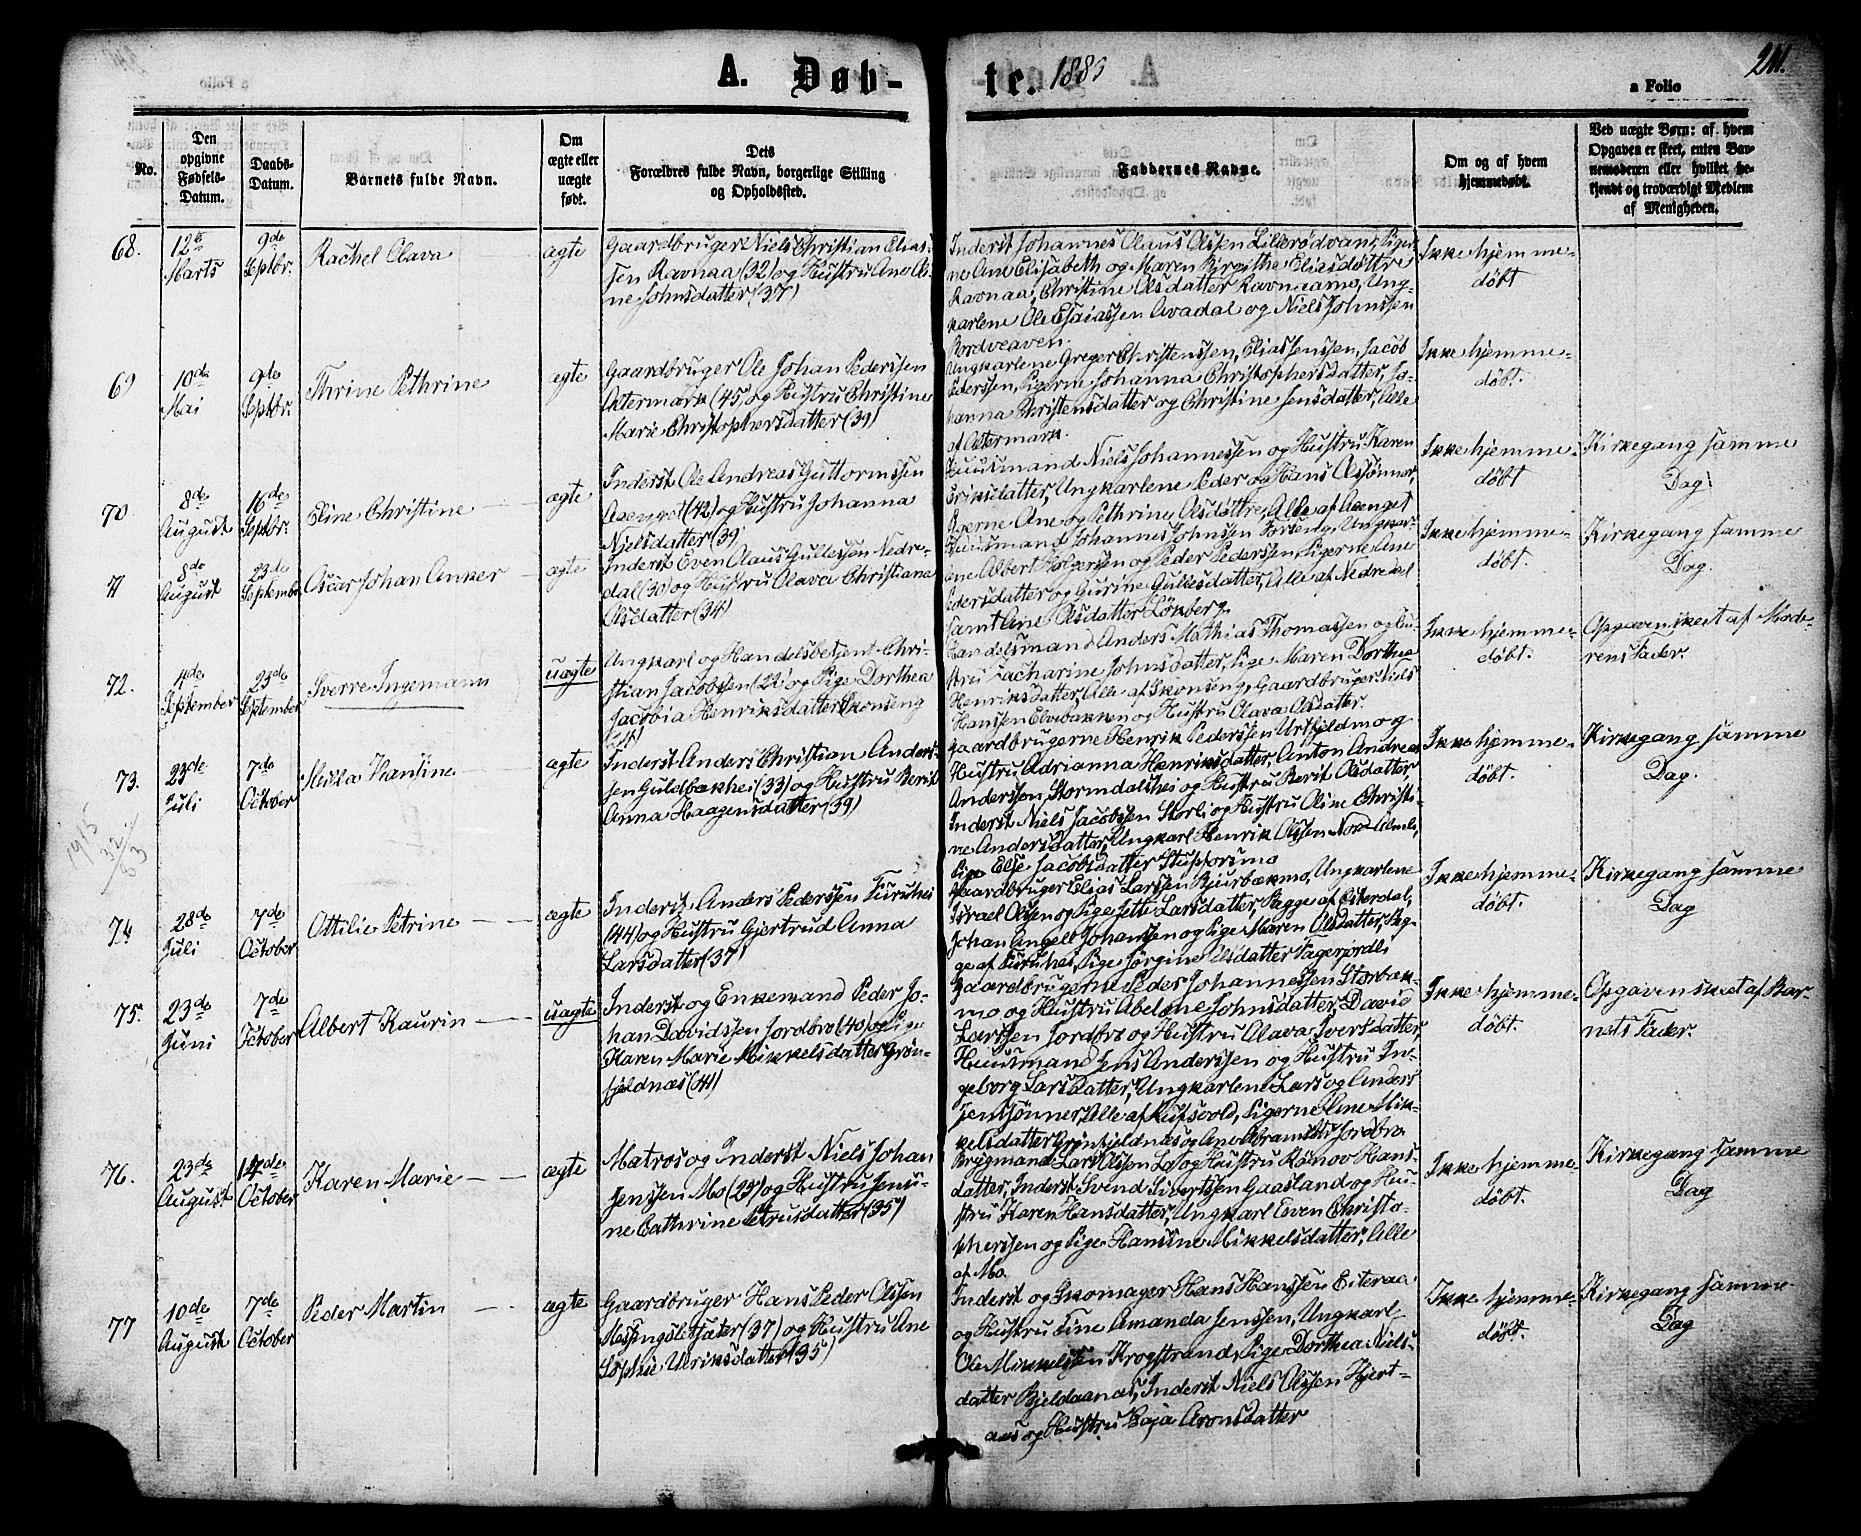 A. Døb-
te. 1883
241.
a Folio
No.
Den
opgivne
Fødsels-
Datum.
Daabs-
Datum.
Barnets fulde Navn.
Om
ægte eller
uægte
født.
Dets
Forældres fulde Navn, borgerlige Stilling
og Opholdssted.
Faddernes Navne.
Om og af hvem
hjemmedøbt.
Ved uægte Børn: af hvem
Opgaven er skeet, enten Bar-
nemoderen eller hvilket be-
kjendt og troværdigt Medlem
af Menigheden.
68.
12te
Marts
9de
Septbr.
Rachel Olava
ægte
Gaardbruger Niels Christian Elias-
sen Ravnaa (32) og Hustru Ane Oli-
ne Johnsdatter (37)
Inderst Johannes Olaus Olsen Lillerødvand, Piger-
ne Ane Elisabeth og Maren Birgithe Eliasdøttre
Ravnaa, Christine Olsdatter Ravnaamo, Ung-
karlene Ole Esaiassen Avadal og Niels Johnssen
Bordveaven.
Ikke hjemme-
døbt
69
10de
Mai
9de
Septbr.
Thrine Pethrine
egte
Gaardbruger Ole Johan Pederssen
Ostermark (45) og Hustru Christine
Marie Christophersdatter (39)
Ungkarlene Greger Christenssen, Elias Jenssen, Jacob
Pederssen, Pigerne Johanna Christophersdatter, Jo-
hanna Christensdatter og Christine Jensdatter, Alle
af Ostermark.
Ikke hjemme-
døbt.
70
8de
August
16de
Septbr.
Eline Christine
ægte
Inderst Ole Andreas Guttormssen
Aasenget (42) og Hustru Johanna
Nielsdatter (39
Huusmand Niels Johannessen og Hustru Karen
Eriksdatter, Ungkarlene Peder og Hans Olssønner,
Pigerne Ane og Pethrine Olsdøttre, Alle af Aasenget
Ikke hjemme-
døbt
Kirkegang samme
Dag
71
8de
August
23de
September
Oscar Johan Anker
ægte
Inderst Even Olaus Gullessen Nedre-
dal (30) og Hustru Olava Christiana
Olsdatter (34)
Huusmand Johannes Johnssen, Ungkar-
lene Albert Holgersen og Peder Pederssen, Pigerne Ane
Pedersdatter og Gurine Gullesdatter, Alle af Nedredal
samt Ane Olsdatter Lønberg.
Ikke hjemme-
døbt.
Kirkegang samme
Dag.
72.
4de
September
23de
September
Sverre Ingemann
uægte
Ungkarl og Handelsbetjent Chri-
stian Jacobsen (22) og Pige Dorthea
Jacobia Henriksdatter Skonseng
Handelsmand Anders Mathias Thomassen og Hu-
stru Zacharine Johnsdatter, Pige Maren Dorthea
Henriksdatter, Alle af Skonseng, Gaardbruger Niels
Hanssen Elvebakken og Hustru Olava Olsdatter.
Ikke hjemme-
døbt.
Opgaven skeet af Mode-
rens Fader.
73.
23de
Juli
7de
October
Milla Hansine
ægte
Inderst Anders Christian Anders-
sen Guldbækhei (33) og Hustru Berit
Anna Haagensdatter (39)
Gaardbrugerne Henrik Pederssen Urtfjeldmo og
Hustru Adrianna Henriksdatter, Anton Andreas
Anderssen, Stormdalshei og Hustru Berit Olsdatter,
Inderst Niels Jacobssen Storli og Hustru Oline Christi-
ne Andersdatter, Ungkarl Henrik Olssen Nord-Almli,
Pige Else Jacobsdatter Stupforsmo
Ikke hjemme-
døbt.
Kirkegang samme
Dag.
1915
32
/63
74
28de
Juli
7de
October
Ottilie Petrine
ægte
Inderst Anders Pederssen Furuhei
(44) og Hustru Gjertrud Anna
Larsdatter (37
Gaardbruger Elias Larssen Bjurbækmo, Ungkarlene
Israel Olssen og Pige Jette Larsdatter, Begge af Esterdal,
Johan Angell Johanssen og Pige Maren Olsdatter, Beg-
ge af Furuhei, Pige Jørgine Olsdatter Fagerjordli
Ikke hjemme-
døbt.
Kirkegang samme
Dag
75.
23de
Juni
7de
October
Albert Kaurin
uægte
Inderst og Enkemand Peder Jo-
han Davidssen Jordbro (40) og Pige
Karen Marie Mikkelsdatter Grøn-
fjeldnæs (41)
Gaardbrugerne Peder Johannessen Storbæk-
mo og Hustru Abelone Johnsdatter, David
Larssen Jordbro og Hustru Olava Ivers datter,
Huusmand Jens Anderssen og Hustru In-
geborg Larsdatter, Ungkarlene Lars og Anders
Jenssønner, Alle af Rufsvold, Pigerne Ane Mik-
kelsdatter Grønfjeldnæs og Ane Abramsdtr Jordbro
Ikke hjemme-
døbt.
Opgaven skeet af Bar-
nets Fader.
76.
23de
August
14de
October
Karen Marie
ægte
Matros og Inderst Niels Johan
Jenssen Mo (23) og Hustru Jensi-
ne Cathrine Petrusdatter (35)
Brygmand Lars Olssen Lø og Hustru Rønnov Hans-
datter, Inderst Svend Sivertssen Gaasland og Hu-
stru Karen Hansdatter, Ungkarl Even Christo-
pherssen og Pige Hansine Mikkelsdatter, Alle
af Mo.
Ikke hjemme-
døbt.
Kirkegang samme
Dag
77
10de
August
7de
October
Peder Martin
ægte
Gaardbruger Hans Peder Olssen
Messingsletsæter (37) og Hustru Ane
Sophie Ulriksdatter (35)
Inderst og Skomager Hans Hanssen Eiteraa
og Hustru Tine Amanda Jenssen, Ungkarl
Ole Mikkelssen Krogstrand, Pige Dorthea Niels-
datter Bjeldaanæs, Inderst Niels Olssen Hjert-
aas og Hustru Kaja Aronsdatter
Ikke hjemme-
døbt.
Kirkegang samme
Dag